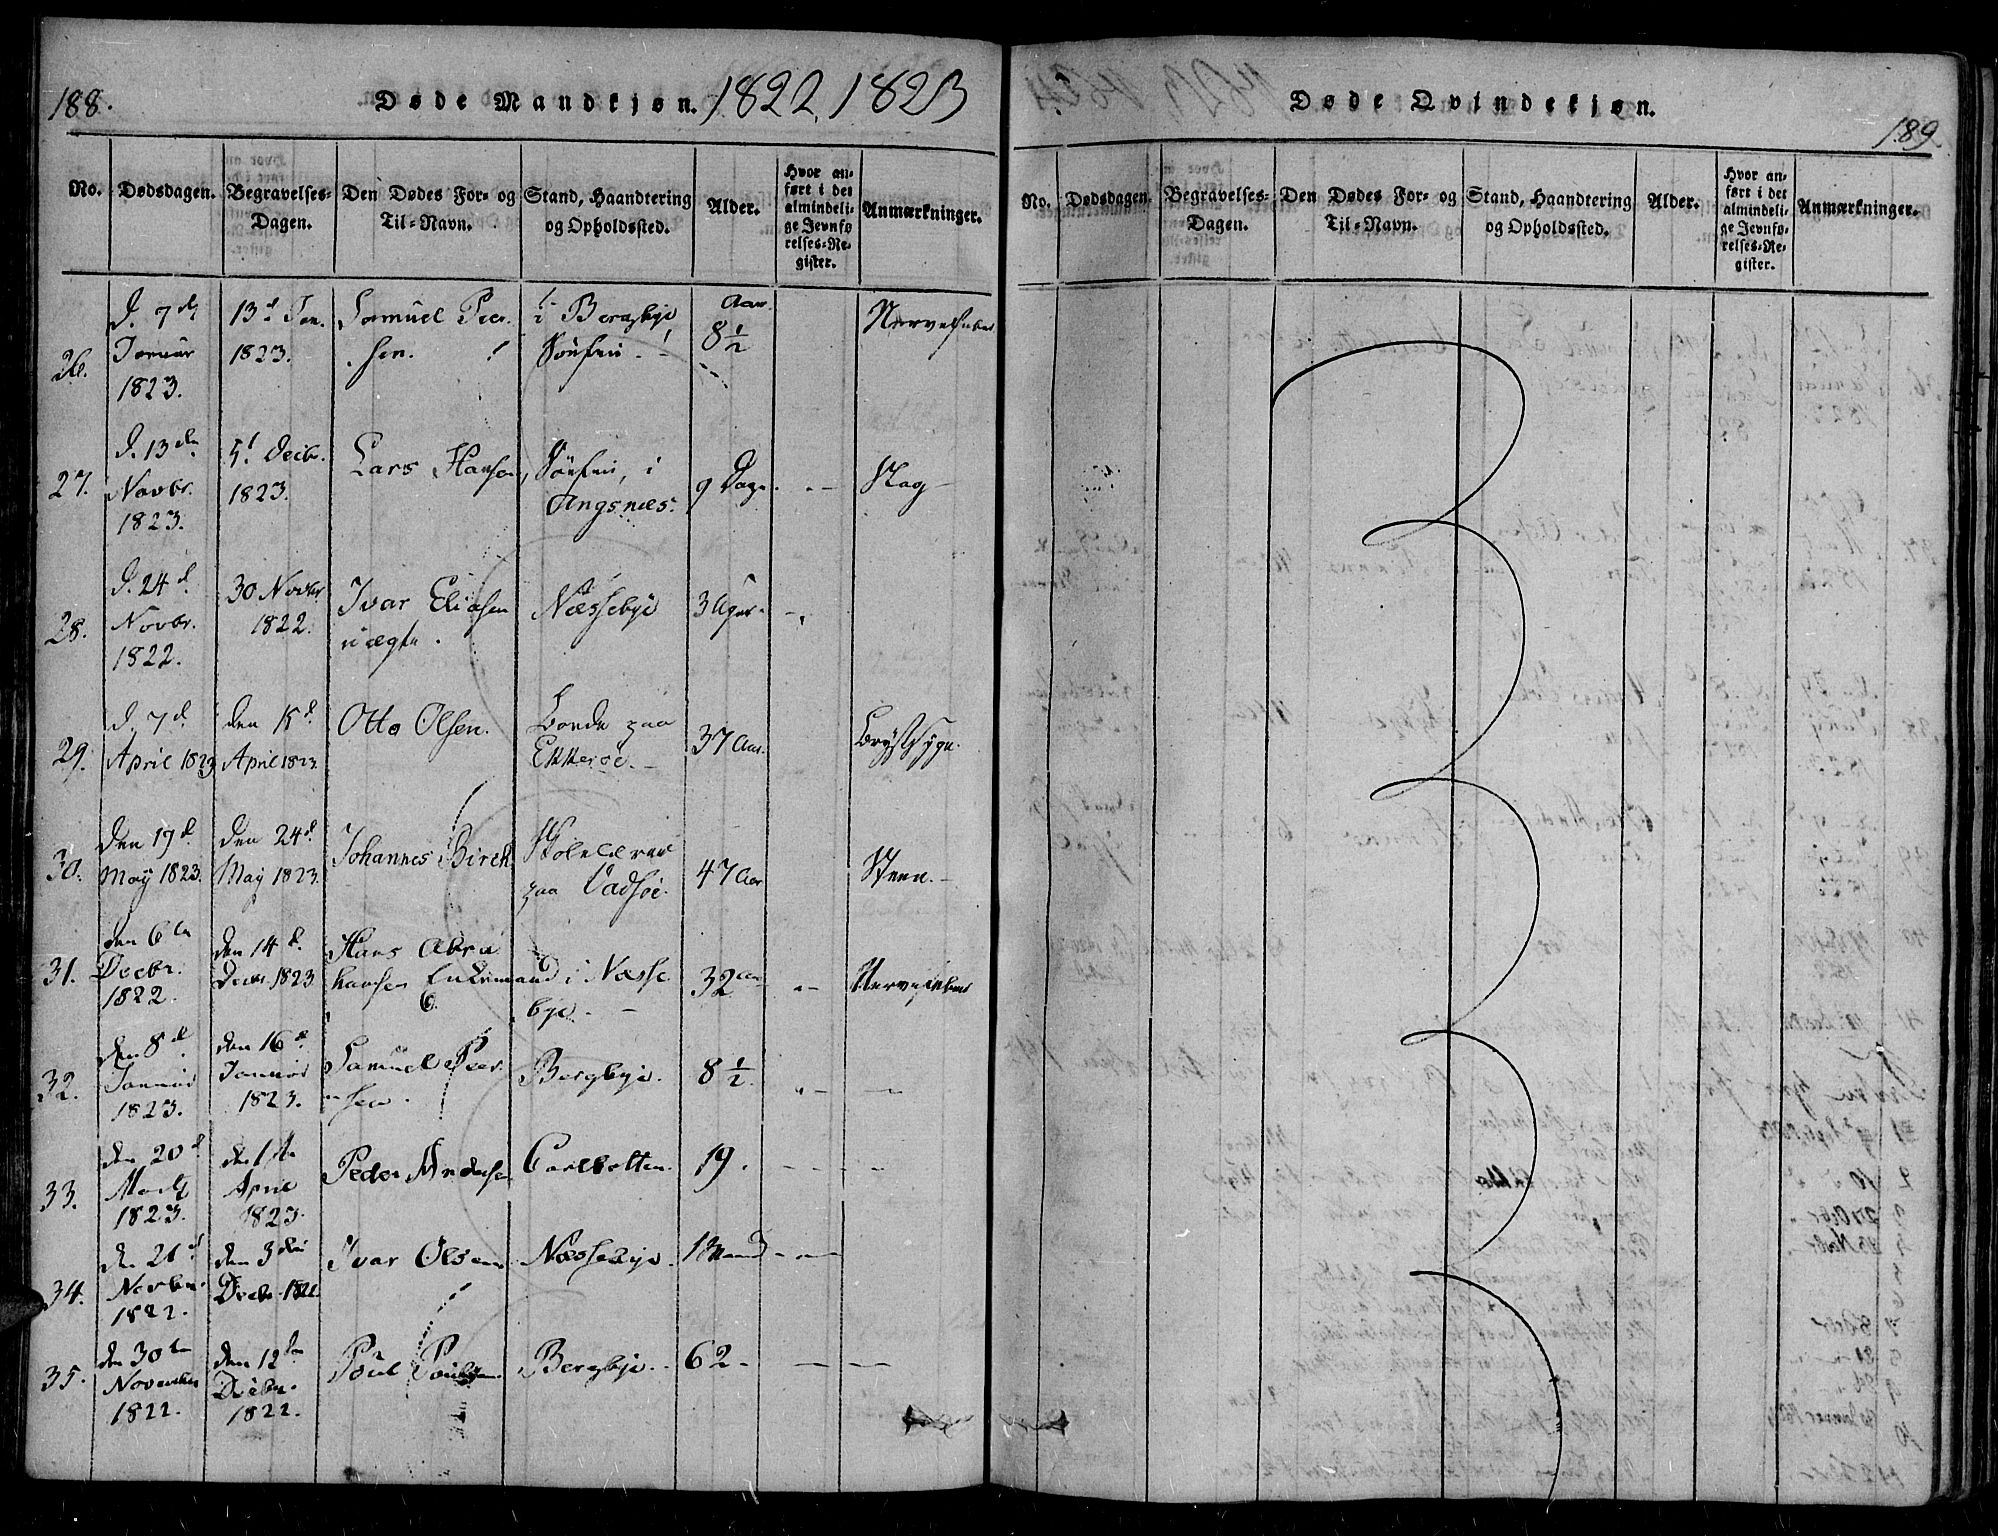 188.
Døde Mandkjøn. 1822, 1823
No. Dødsdagen. Begravelses-Dagen. Den Dødes For- og Til-Navn. Stand, Haandtering og Opholdssted. Alder. Hvor anført i det almindelige Jevnførelses-Register. Anmærkninger.
26.
D. 7d
Januar
1823.
13d Jan.
1823.
Samuel Peer-
sen.
i Bergebye
Aar
8½
27.
D. 13de
Novbr.
1823.
5t Decbr.
1823.
Lars Hansen,
i
Angsnæs.
9 Dage
Slag
28.
D. 24d
Novbr.
1822.
30 Novbr
1822.
Ivar Eliasen
uægte.
Næssebye
3 Uger
29.
D. 7d
April 1823
den 15d
April 1823.
Otto Olsen.
Bonde paa
Ekkerøe.
37 Aar.
Brystsyge.
30.
den 17d
May 1823.
den 24d
May 1823.
Johannes Birch
Skolelærer
paa Vadsøe.
47 Aar
Steen.
31.
den 6te
Decbr.
1822.
den 14d
Decbr 1823
Hans Abra
hamsen Enkemand i Næsse
bye.
32 Aar
32.
den 8d
Januar
1823.
den 16d
Januar
1823.
Samuel Peer
sen.
Bergebye.
8½.
33.
den 20d
Marty
1823.
den 1ste
April
1823.
Peder Andersen
19.
34.
den 21d
Novbr.
1822.
den 3die
Decbr. 1822
Ivar Olsen
Næssebye.
1 Maaned
35.
den 30te
November
1822.
den 12te
Decbr.
1822.
Poul Poulsen
Bergebye.
62
Døde Qvindekjøn.
189
No. Dødsdagen. Begravelses-Dagen. Den Dødes For- og Til-Navn. Stand, Haandtering og Opholdssted. Alder. Hvor anført i det almindelige Jevnførelses-Register. Anmærkninger.